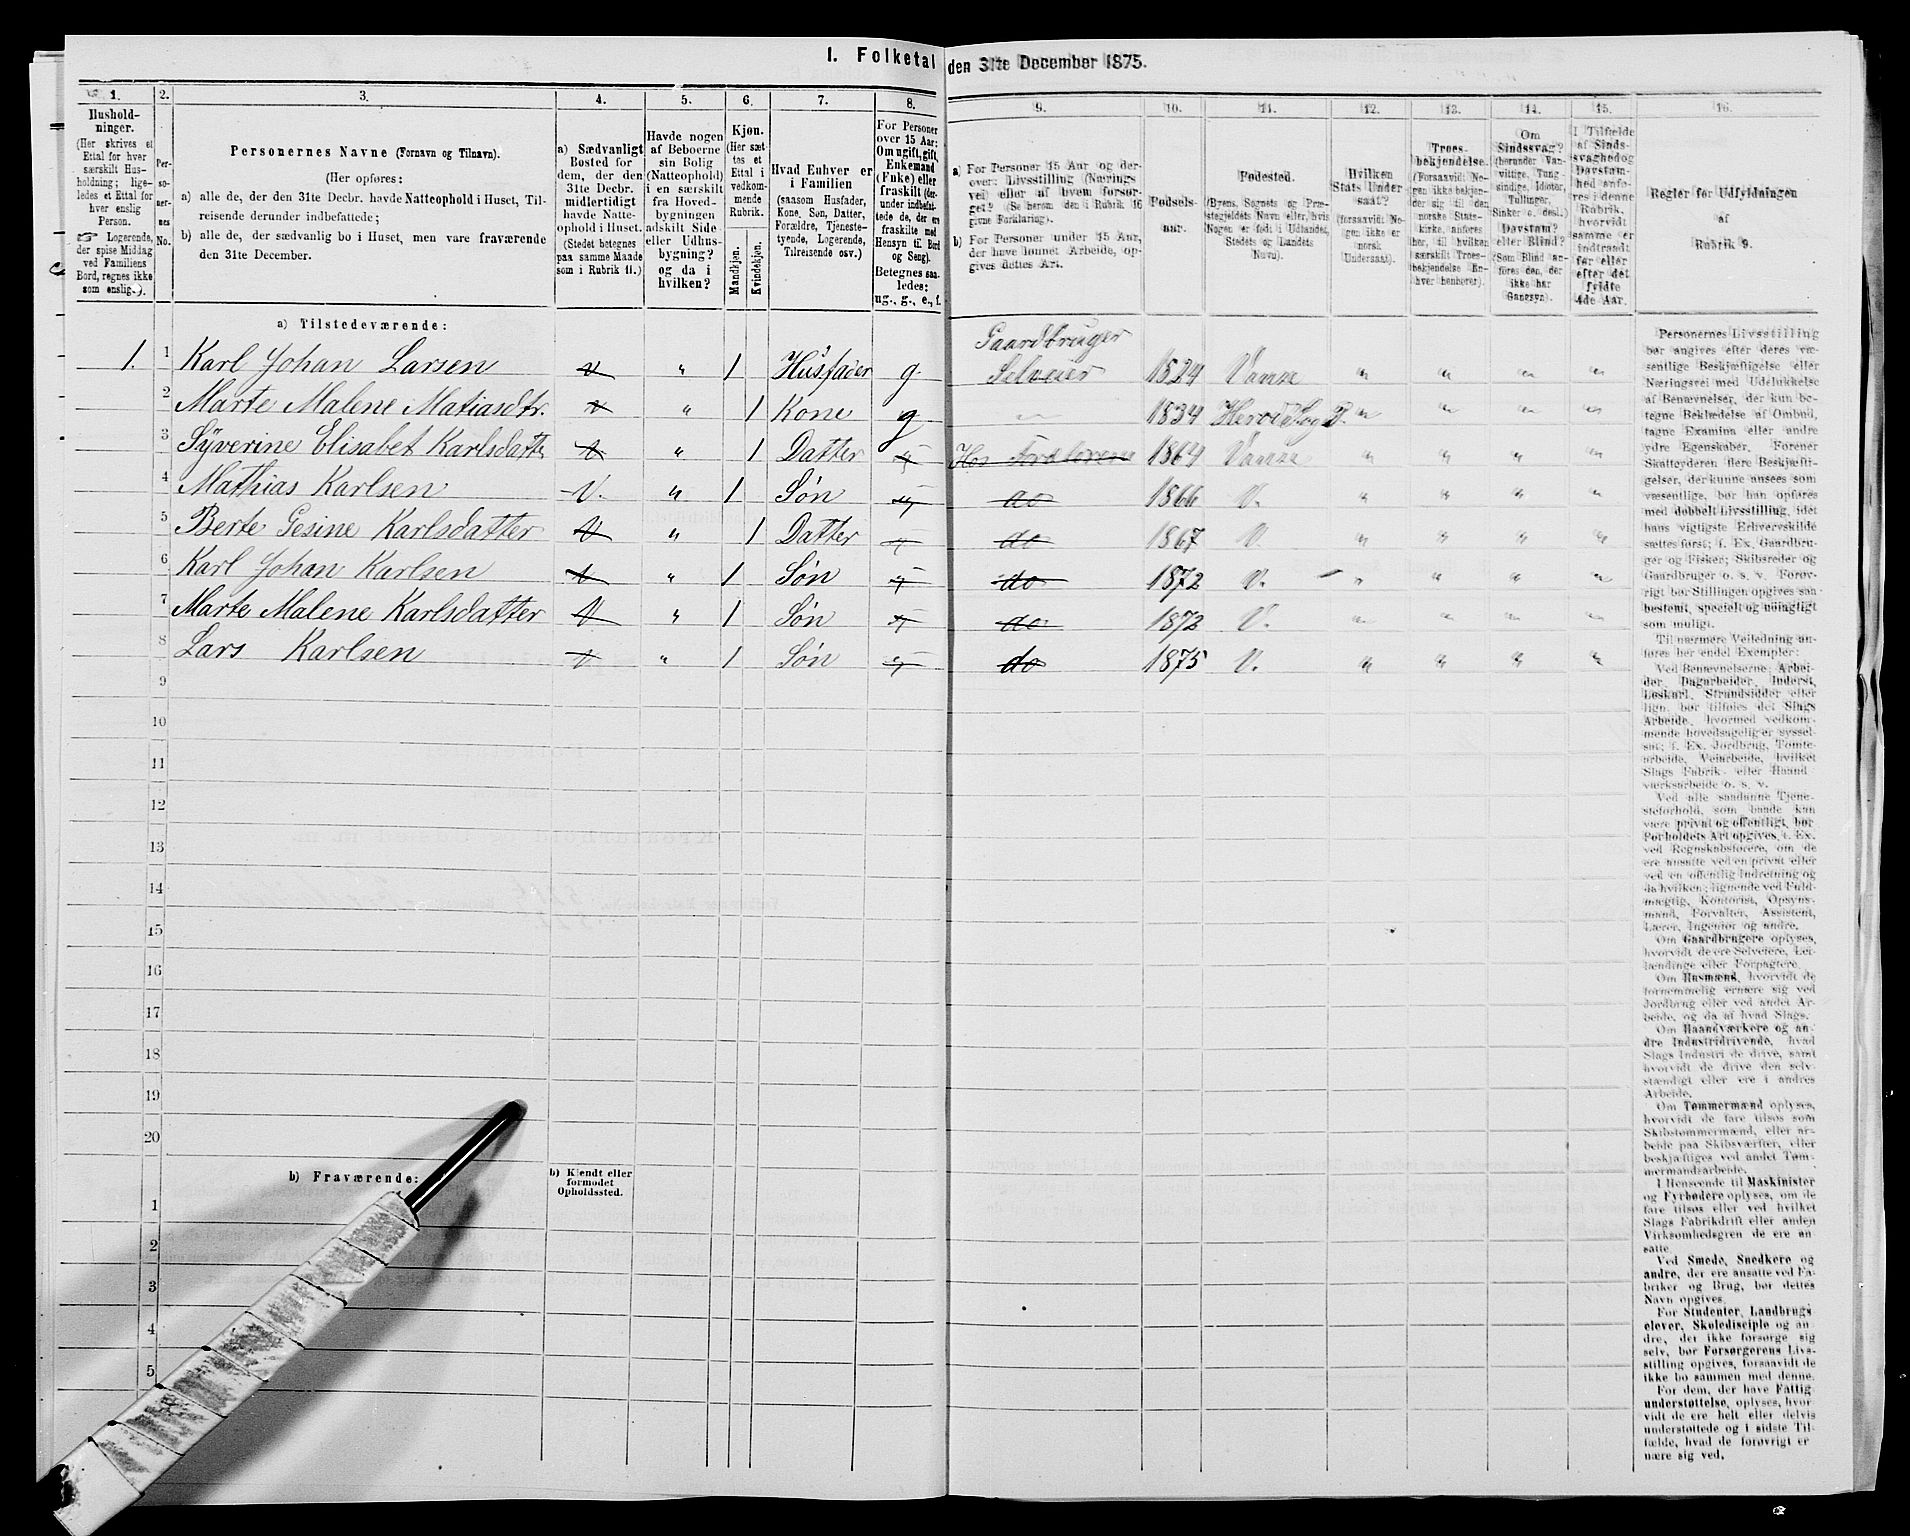 I. Folketal den 31te December 1875.
1.
Hushold-
ninger.
(Her skrives et
Ettal for hver
særskilt Hus-
holdning; lige-
ledes et Ettal for
hver enslig
Person.
☞ Logerende,
der spise Middag
ved Familiens
Bord, regnes ikke
som enslige.).
2.
Per-
so-
ner-
nes
No.
3.
Personernes Navne (Fornavn og Tilnavn).
(Her opføres:
a) alle de, der den 31te Decbr. havde Natteophold i Huset, Til-
reisende derunder indbefattede;
b) alle de, der sædvanlig bo i Huset, men vare fraværende
den 31te December.
4.
a) Sædvanligt
Bosted for
dem, der den
31te Decbr.
midlertidigt
havde Natte-
ophold i Huset.
(Stedet betegnes
paa samme Maade
som i Rubrik 11.)
5.
Havde nogen
af Beboerne
sin Bolig
(Natteophold)
i en særskilt
fra Hoved-
bygningen
adskilt Side
eller Udhus-
bygning?
og da i
hvilken?
6.
Kjøn.
(Her sæt-
tes et
Ettal i
vedkom-
mende
Rubrik.
Mandkjøn.
Kvindekjøn.
7.
Hvad Enhver er
i Familien
(saasom Husfader,
Kone, Søn, Datter,
Forældre, Tjeneste-
tyende, Logerende,
Tilreisende osv.)
8.
For Personer
over 15 Aar:
Om ugift, gift,
Enkemand
(Enke) eller
fraskilt (der-
under indbefat-
tede de, der ere
fraskilte med
Hensyn til Bord
og Seng).
Betegnes saa-
ledes:
ug., g., e., f.
9.
a) For Personer 15 Aar og der-
over: Livsstilling (Nærings-
vei) eller af hvem forsør-
get? (Se herom den i Rubrik 16
givne Forklaring).
b) For Personer under 15 Aar,
der have lønnet Arbeide, op-
gives dettes Art.
10.
Fødsels-
aar.
11.
Fødested.
(Byens, Sognets og Præ-
stegjeldets Navn eller, hvis
Nogen er født i Udlandet,
Stedets og Landets
Navn).
12.
Hvilken
Stats Under-
saat?
(forsaavidt No-
gen ikke er
norsk
Undersaat).
13.
Troes-
bekjendelse.
(Forsaavidt No-
gen ikke bekjen-
der sig til den
norske Stats-
kirke, anføres
her, til hvilken
særskilt Troes-
bekjendelse En-
hver henhører).
14.
Om
Sindssvag?
(herunder Van-
vittige, Tung-
sindige, Idioter,
Tullinger,
Sinker o. desl.)
Døvstum?
eller Blind?
(Som Blind an-
føres den, der
ikke har
Gangsyn).
15.
I Tilfælde
af Sinds-
svaghed og
Døvstum-
hed anfø-
res i denne
Rubrik,
hvorvidt
samme er
indtraadt
før eller
efter det
fyldte
4de Aar.
16.
Regler for Udfyldningen
af
Rubrik 9.
a) Tilstedeværende:
1. 1 Karl Johan Larsen v " 1 Husfader g. Gaardbruger Selveier 1824 Vanse " " " "
2 Marte Malene Matiasdtr. v " 1 Kone g " 1834 " " " "
3 Syverine Elisabet Karlsdatter v " 1 Datter Hos Forældrene 1864 Vanse " " " "
4 Mathias Karlsen V. " 1 Søn do 1866 V. " " " "
5 Berte Gesine Karlsdatter V " 1 Datter do 1867 V " " " "
6 Karl Johan Karlsen V " 1 Søn do 1872 V. " " " "
7 Marte Malene Karlsdatter V " 1 Søn do 1872 V. " " " "
8 Lars Karlsen V " 1 Søn do 1875 V. " " " "
9
10
11
12
13
14
15
16
17
18
19
20
b) Fraværende:
b) Kjendt eller
formodet
Opholdssted.
1
2
3
4
5
Personernes Livsstilling
bør angives efter deres væ-
sentlige Beskjæftigelse eller
Næringsvei med Udelukkelse
af Benævnelser, der kun be-
tegne Beklædelse af Ombud,
tagne Examina eller andre
ydre Egenskaber. Forener
Skatteyderen flere Beskjæfti-
gelser, der kunne ansees som
væsentlige, bør han opføres
med dobbelt Livsstilling, idet
hans vigtigste Erhvervskilde
sættes først; f. Ex. Gaardbru-
ger og Fisker; Skibsreder og
Gaardbruger o. s. v. Forøv-
rigt bør Stillingen opgives saa
bestemt, specielt og nøiagtigt
som muligt.
Til nærmere Veiledning an-
føres her endel Exempler:
Ved Benævnelserne: Arbei-
der, Dagarbeider, Inderst,
Løskarl, Strandsidder eller
lign. bør tilføies det Slags
Arbeide, hvormed vedkom-
mende hovedsagelig er syssel-
sat; f. Ex. Jordbrug, Tomte-
arbeide, Veiarbeide, hvilket
Slags Fabrik- eller Haand-
værksarbeide o. s. v.
Ved alle saadanne Tjene-
steforhold, som baade kan
være privat og offentligt, bør
Forholdets Art opgives, f. Ex.
ved Regnskabsførere, om de
ere ansatte ved en privat eller
ved en offentlig Indretning og
da hvilken; lignende ved Fuld-
mægtig, Kontorist, Opsyns-
mand, Forvalter, Assistent,
Lærer, Ingeniør og andre.
Om Gaardbrugere oplyses,
hvorvidt de ere Selveiere, Lei-
lændinge eller Forpagtere.
Om Husmænd, hvorvidt de
fornemmelig ernære sig ved
Jordbrug eller ved andet Ar-
beide, og da af hvad Slags.
Om Haandværkere og an-
dre Industridrivende, hvad
Slags Industri de drive, samt
hvorvidt de drive den selv-
stændigt eller ere i andres
Arbeide.
Om Tømmermænd oplyses,
hvorvidt de fare tilsøs som
Skibstømmermænd, eller ar-
beide paa Skibsværfter, eller
beskjæftiges ved andet Tøm-
mermandsarbeide.
I Henseende til Maskinister
og Fyrbødere oplyses, om de
fare tilsøs eller ved hvilket
Slags Fabrikdrift eller anden
Virksomhedsgren de ere an-
satte.
Ved Smede, Snedkere og
andre, der ere ansatte ved Fa-
briker og Brug, bør dettes
Navn opgives.
For Studenter, Landbrugs-
elever, Skoledisciple og an-
dre, der ikke forsørge sig
selv, bør Forsørgerens Livs-
stilling opgives, forsaavidt de
ikke bo sammen med denne.
For dem, der have Fattig-
understøttelse, oplyses, hvor-
vidt de ere helt eller delvis
understøttede og i sidste Til-
fælde, hvad de forøvrigt er-
nære sig ved.